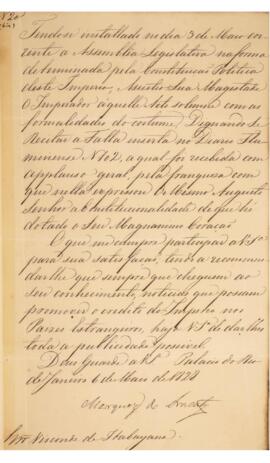 Tendo-se installado no dia 3 de Maio cor-
rente a Assemblea Legislativa na forma
determinada pela Constituição Politica
deste Imperio, Assistio Sua Magestade
o Imperador áquelle Acto solemne com as
formalidades do costume, Dignando-se
Recitar a Falla inserta no Diario Flu-
minense Nº 102, a qual foi recebida com
applauso geral, pela franqueza com
que nella exprimio o Mesmo Augusto
Senhor a Constitucionalidade de que he
dotado o Seu Magnanimo Coração
O que me cumpre participar a V.Sª
para sua satisfação, tendo a recommen-
dar-lhe que sempre que cheguem ao
seu conhecimento, noticias que possam
promover o credito do Imperio nos
Paizes Estrangeiros, haja V.Sª de dar-lhes
toda a publicidade possivel.
Deus Guarde a V.Sª Palacio do Rio
de Janeiro 6 de Maio de 1828
Marquez de Aracaty
Snr Visconde de Itabayana.